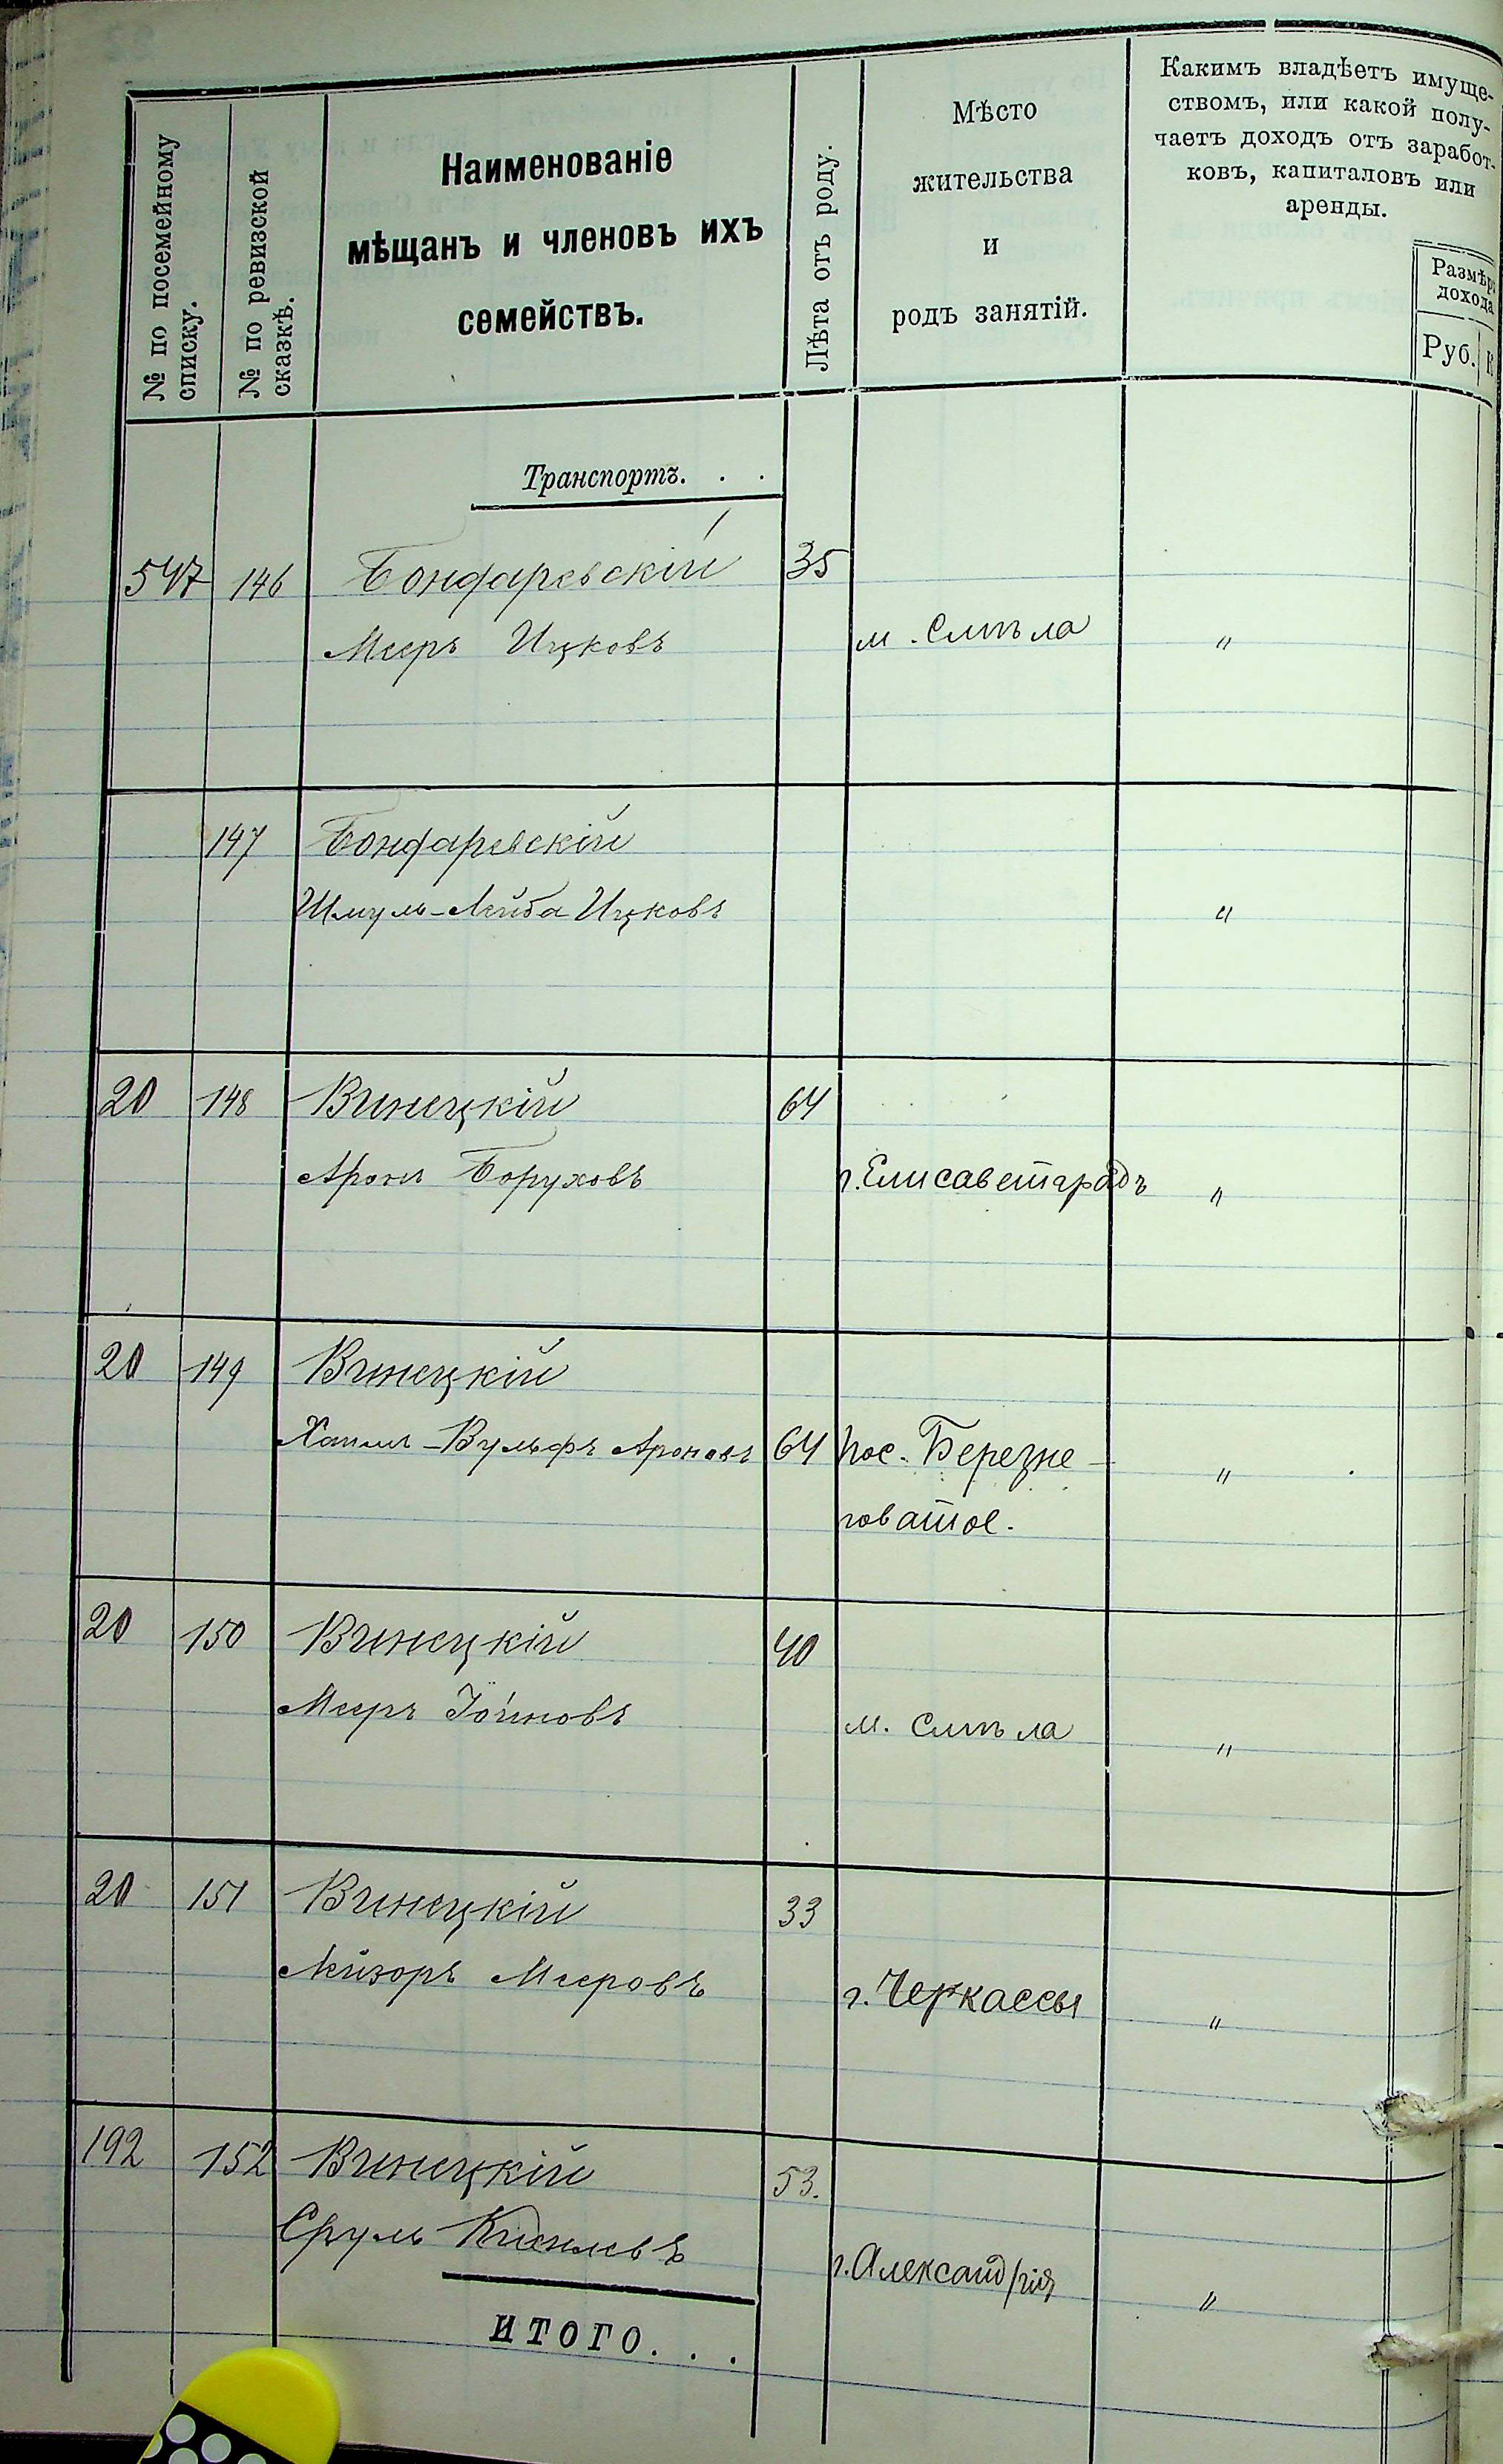 № по посемейному
списку.
№ по ревизской
сказкѣ.
Наименованіе
мѣщанъ и членовъ ихъ
семействъ.
Лѣта отъ роду.
Мѣсто
жительства
и
родъ занятій.
Какимъ владѣетъ имуще-
ствомъ, или какой полу-
чаетъ доходъ отъ заработ-
ковъ, капиталовъ или
аренды.
Размѣръ
дохода
Руб. К
Транспортъ. . .
547 146 Бондаревскій 35
Мееръ Ицковъ м. Смѣла "
147 Бондаревскій
Шмуль-Лейба Ицковъ "
20 148 Винецкій 64
Аронъ Боруховъ г. Елисаветградъ "
20 149 Винецкій
Хаимъ-Вульфъ Ароновъ 64 пос. Березне- "
говатое.
20 150 Винецкій 40
Мееръ м. Смѣла "
20 151 Винецкій 33
Лейзоръ Мееровъ г. Черкассы "
192 152 Винецкій 53.
Сруль г. Александрія "
ИТОГО. . .